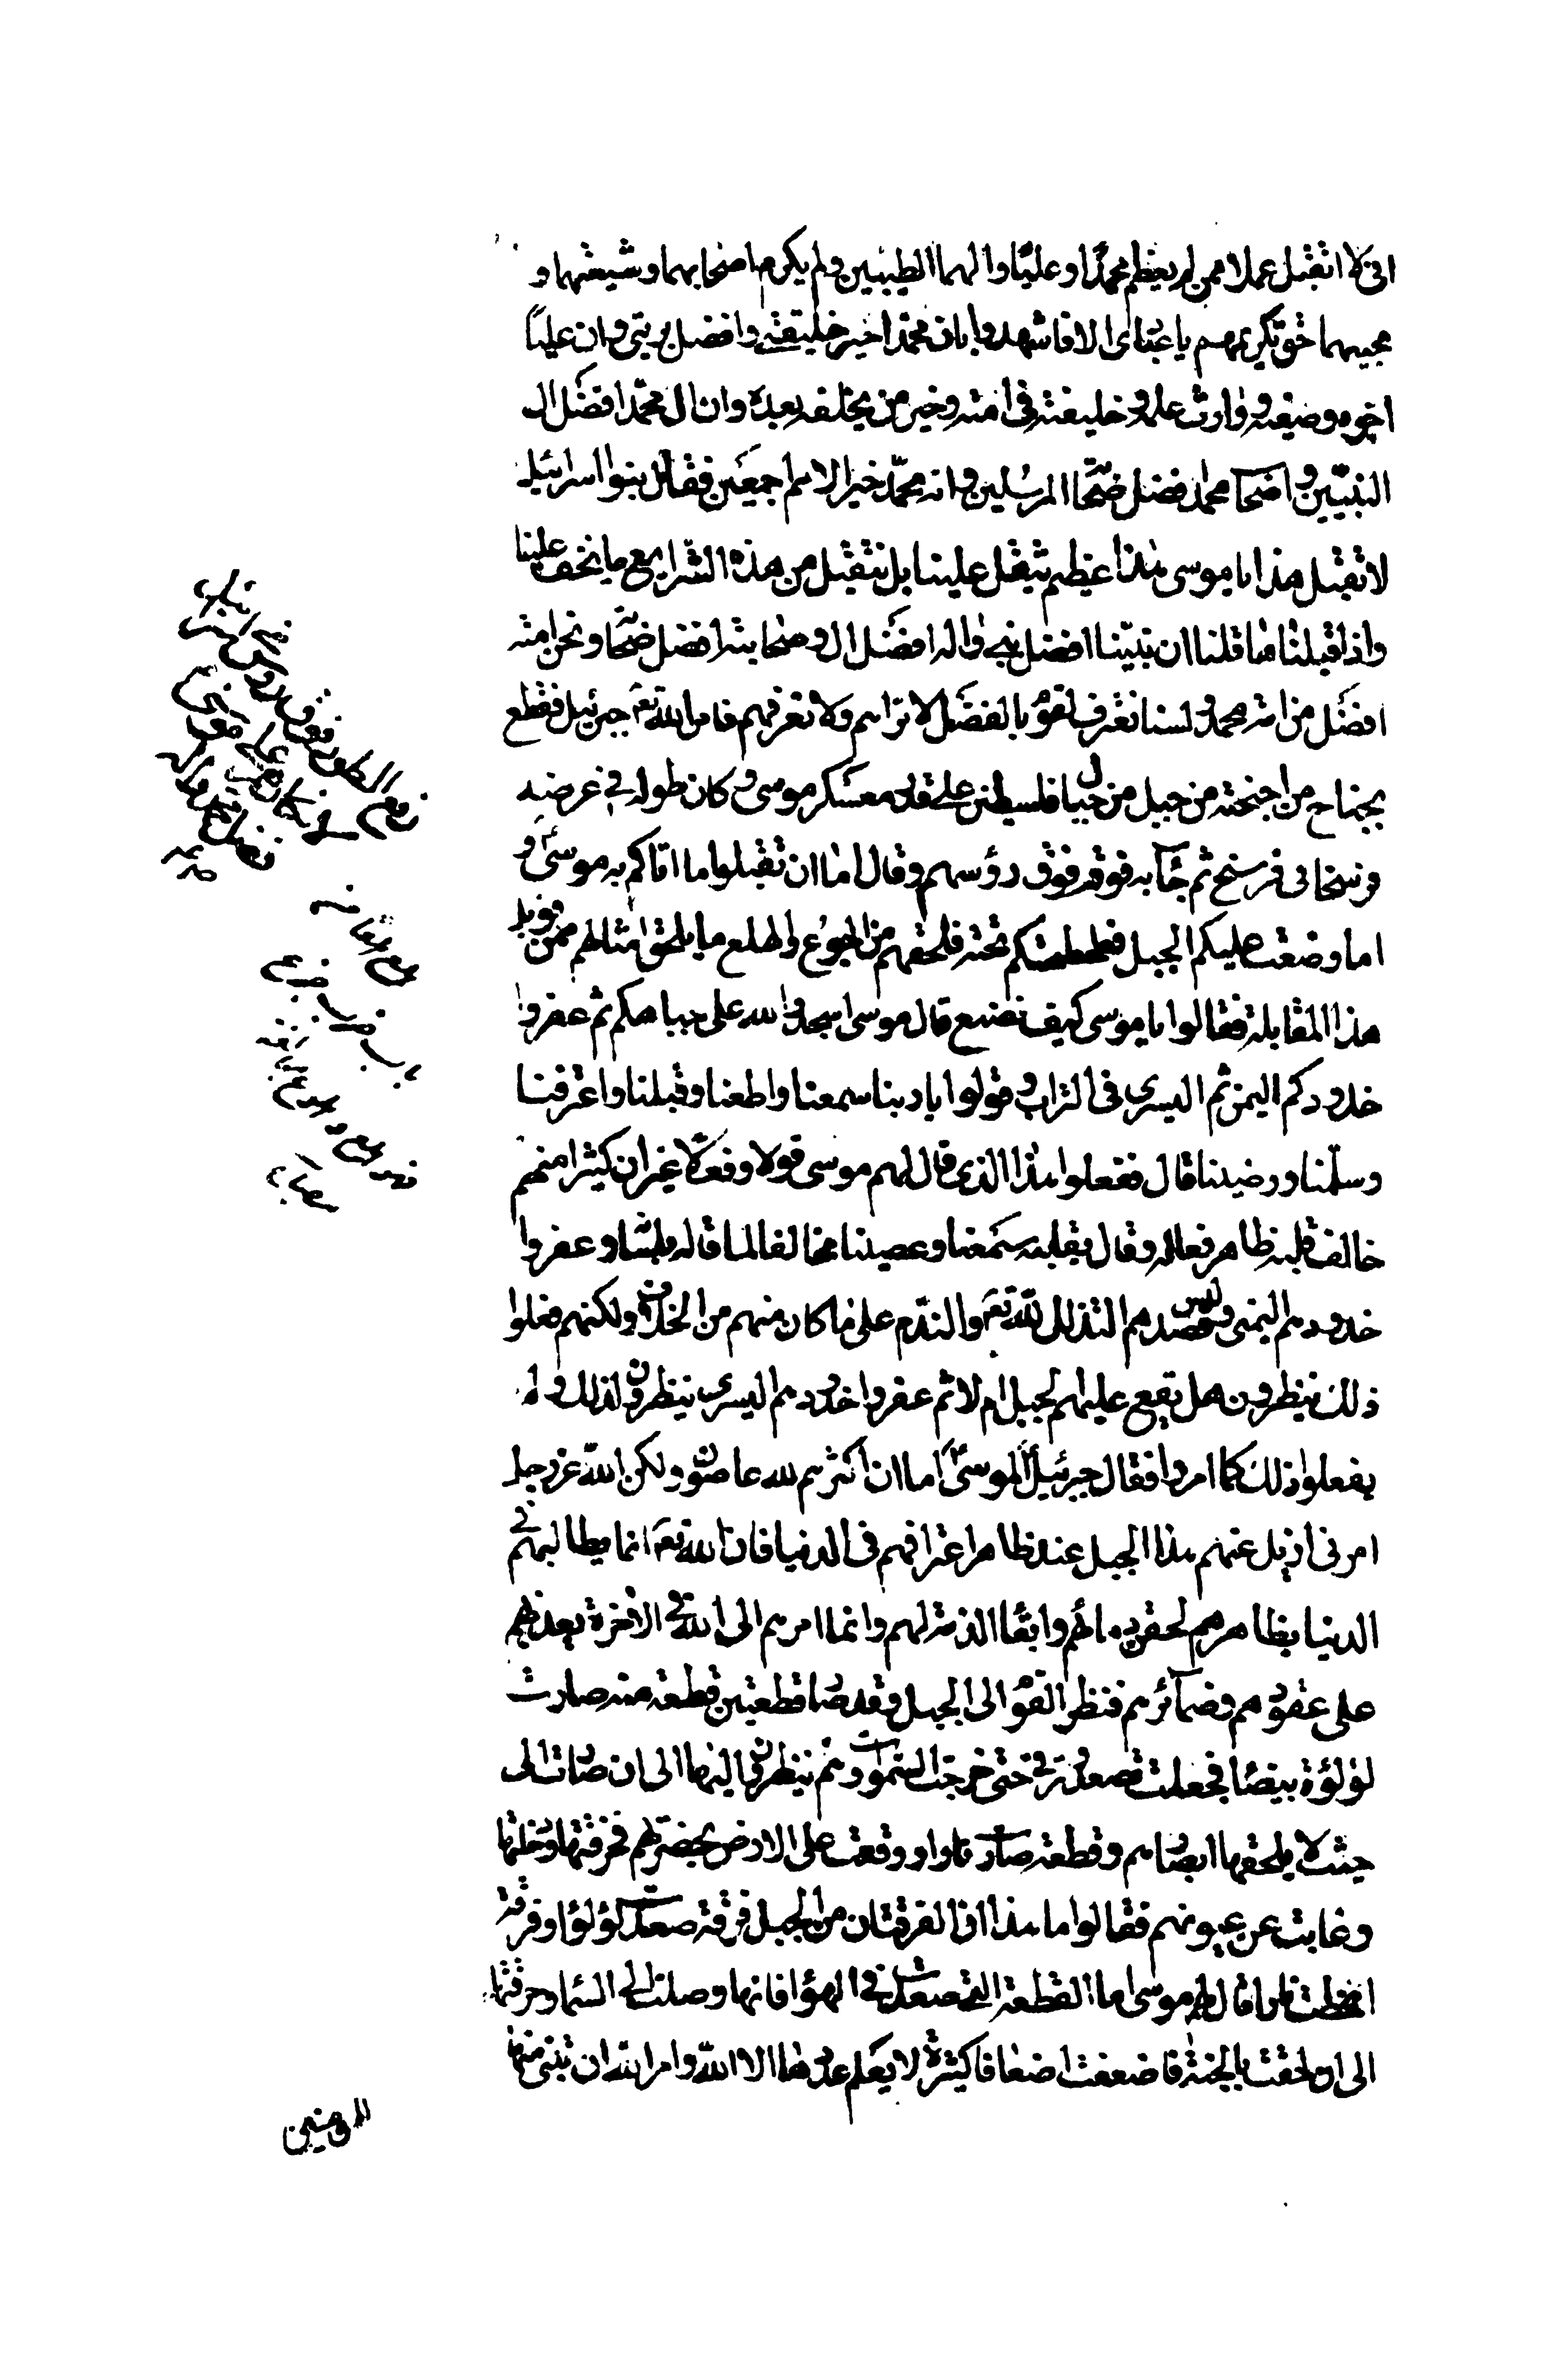 انى لا اتقبل عملا ممن لم يعظم محمدا وعليا والهما الطيبين ولم يكرم اصحابهما وشيعتهما و
محبيهما حق تكريمهم يا عبادى الا فاشهدوا بان محمدا خير خليقتى وافضل بريتى وان عليا
اخوه وصفيه ووارث علمه وخليفته فى امته وخير من يخلفه بعده وان ال محمد افضل ال
النبيين واصحاب محمد افضل صحابة المرسلين وامة محمد خير الامم اجمعين فقال بنوا اسرائيل
لا نقبل هذا يا موسى هذا عظيم ثقيل علينا بل نتقبل من هذه الشرايع ما يخف علينا
واذا قبلناها قلنا ان نبينا افضل نبى واله افضل ال وصحابته افضل صحابة ونحن امته
افضل من امة محمد ولسنا نعترف لقوم بالفضل لا نراهم ولا نعرفهم فامر الله تعم جبرئيل فقطع
بجناح من اجنحته من جبل من جبال فلسطين على قدر معسكر موسى وكان طوله فى عرضه
فرسخا فى فرسخ ثم جاء به فوقه فوق رؤسهم وقال اما ان تقبلوا ما اتاكم به موسى و
اما وضعت عليكم الجبل فطحطحتكم تحته فلحقهم من الجزع والهلع ما يلحق امثالهم ممن قوبل
هذا المقابلة فقالوا يا موسى كيف نصنع قال موسى اسجدوا لله على جباهكم ثم عفروا
خدودكم اليمنى ثم اليسرى فى التراب وقولوا يا ربنا سمعنا واطعنا وقبلنا واعترفنا
وسلمنا ورضينا قال ففعلوا هذا الذى قال لهم موسى قولا وفعلا غير ان كثيرا منهم
خالف قلبه ظاهر فعاله وقال بقلبه سمعنا وعصينا مخالفا لما قاله بلسانه وعفروا
خدودهم اليمنى وليس قصدهم التذلل لله تعم والندم على ما كان منهم من الخلاف ولكنهم فعلوا
ذلك ينظرون هل يقع عليهم الجبل ام لا ثم عفروا خدودهم اليسرى ينظرون لذلك ولم
يفعلوا ذلك كما امروا فقال جبرئيل لموسى اما ان اكثرهم لله عاصون ولكن الله عز وجل
امرنى ازيل عنهم هذا الجبل عند ظاهر اعترافهم فى الدنيا فان الله تعم انما يطالبهم فى
الدنيا بظاهرهم لحقن دمائهم وابقاء الذمة لهم وانما امرهم الى الله فى الاخرة يعذبهم
على عقودهم وضمائرهم فنظر القوم الى الجبل وقد صار قطعتين قطعة منه صارت
لؤلؤة بيضاء فجعلت تصعد وترقى حتى خرجت السموات وهم ينظرون اليها الى ان صارت الى
حيث لا يلحقها ابصارهم وقطعة صارت نارا ووقعت على الارض بحضرتهم فخرقتها ودخلتها
وغابت عن عيونهم فقالوا ما هذا الفرقتان من الجبل فرقة صعدت لؤلؤا وفرقة
انحطت نارا قال لهم موسى اما القطعة التى صعدت فى الهواء فانها وصلت الى السماء وخرقتها
الى ان لحقت بالجنة فاضعفت اضعافا كثيرة لا يعلم عددها الا الله وامر الله ان تبنى منها
للمؤمنين